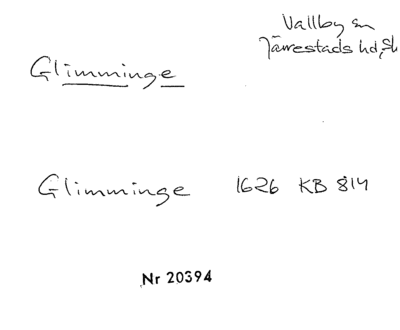 Vallby sn
Järrestads hd, Sk
Glimminge
Glimminge 1626 KB 814
Nr 20394